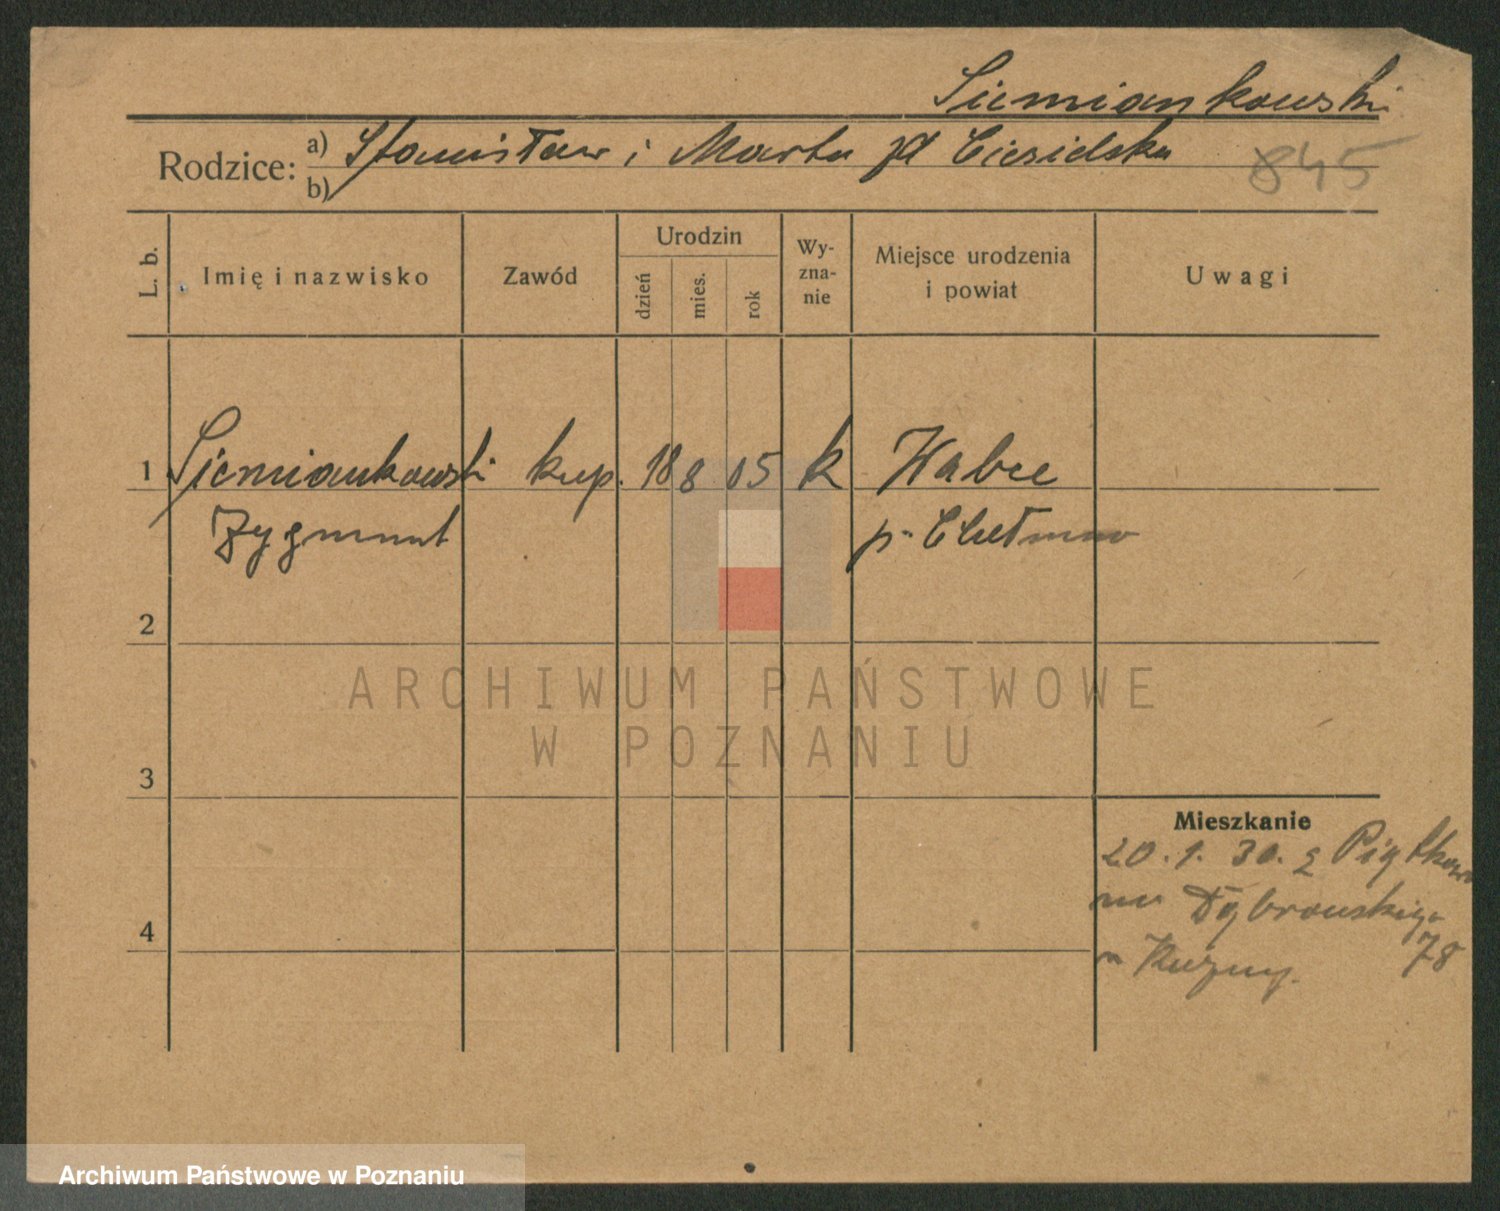 Siemiankowski
Rodzice: a) Stanisław i Marta zd Ciesielska
b)
845
L. b.
Imię i nazwisko
Zawód
Urodzin
dzień
mies.
rok
Wy-
zna-
nie
Miejsce urodzenia
i powiat
Uwagi
1 Siemiankowski kup. 18 8 05 k Wabcz
Zygmunt p. Chełmno
2
3
4
Mieszkanie
20. 1. 30. z Piątkowa
na Dąbrowskiego
78
ARCHIWUM PAŃSTWOWE
W POZNANIU
Archiwum Państwowe w Poznaniu